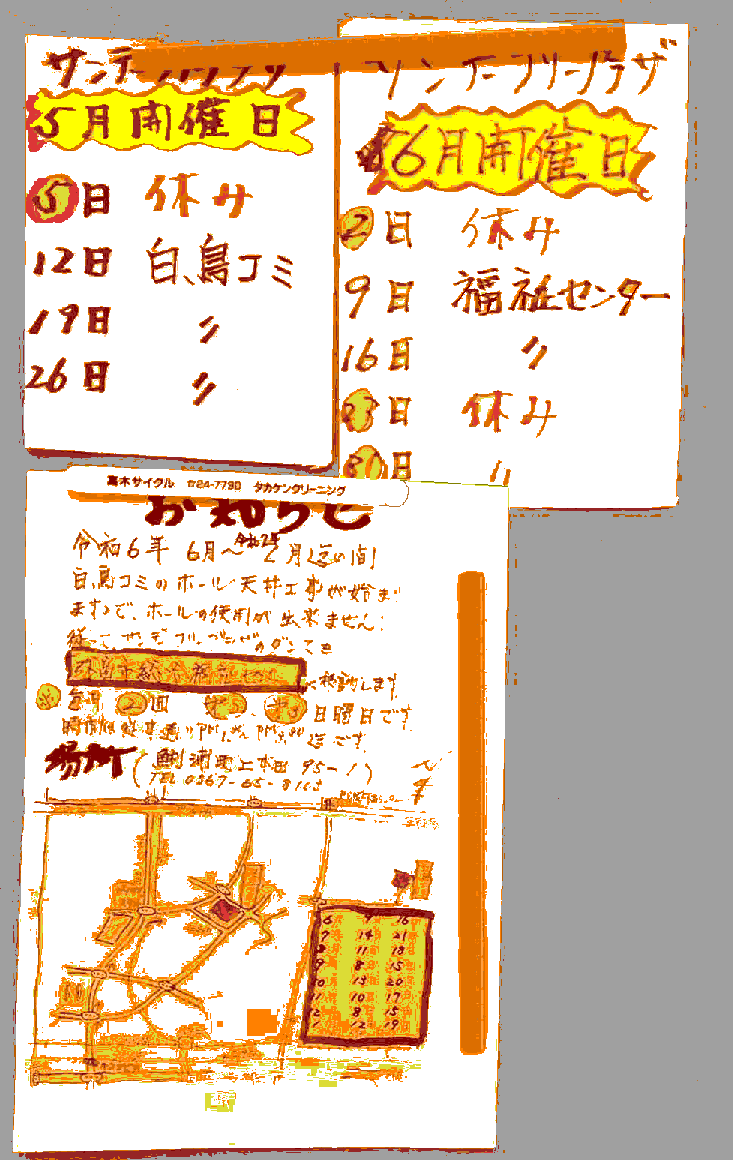 サンデーフリープラザ
5月開催日
5日 休み
12日 白鳥コミ
19日 〃
26日 〃
サンデーフリープラザ
6月開催日
2日 休み
9日 福祉センター
16日 〃
23日 休み
30日 〃
高木サイクル ☎24-7790 タカケンクリーニング
お知らせ
令和6年 6月〜 2月迄の間
白鳥コミのホール天井工事が始まり
ますので、ホールの使用が出来ません!
従って、サンデーフリープラザのダンスを
へ移動します。
毎月 2回 日曜日です
迄です。
場所(鯏浦町上本田 95-1)
TEL 0567-65-8103
6 9 16
7 14 21
8 11 18
9 8 15
10 13 20
11 10 17
12 8 15
1 12 19